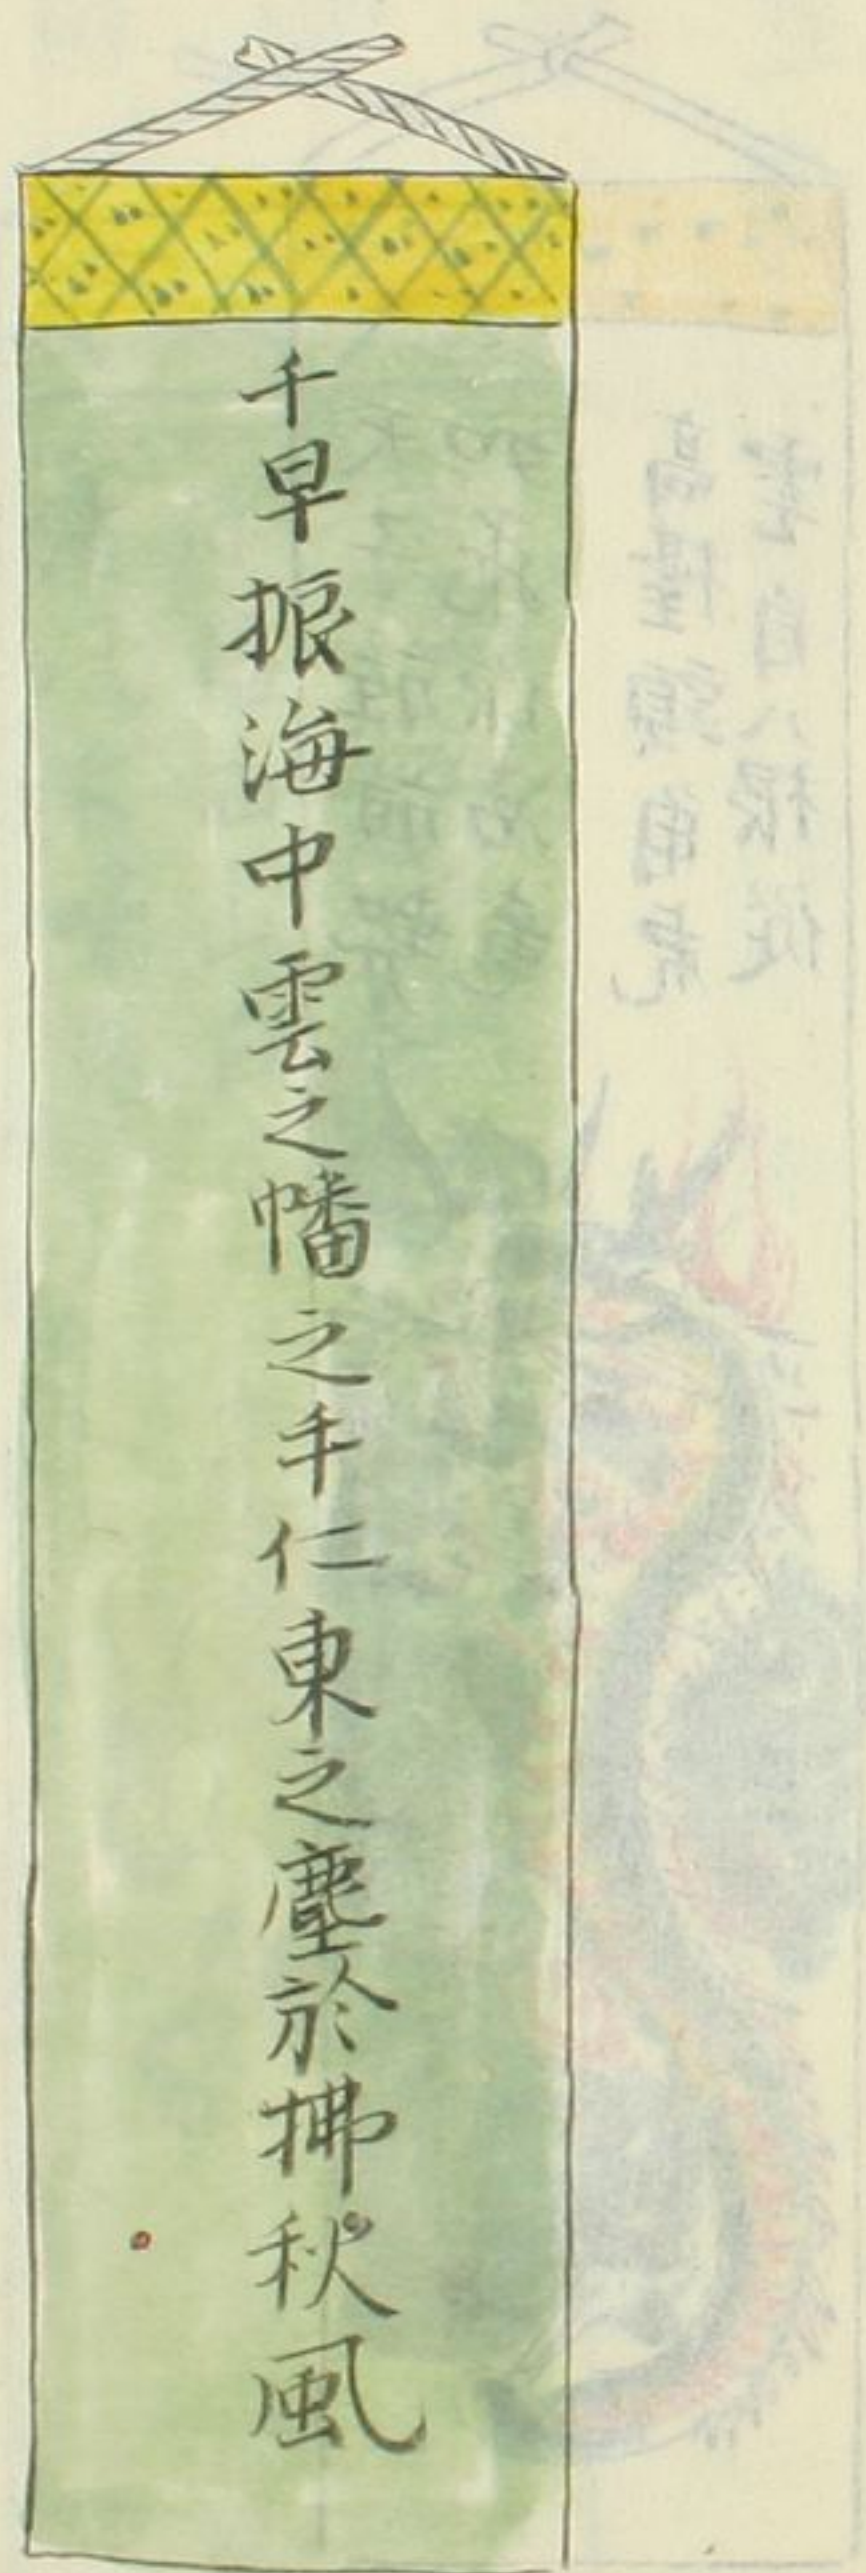 千早振海中雲之幡之手仁東之塵於拂秋風